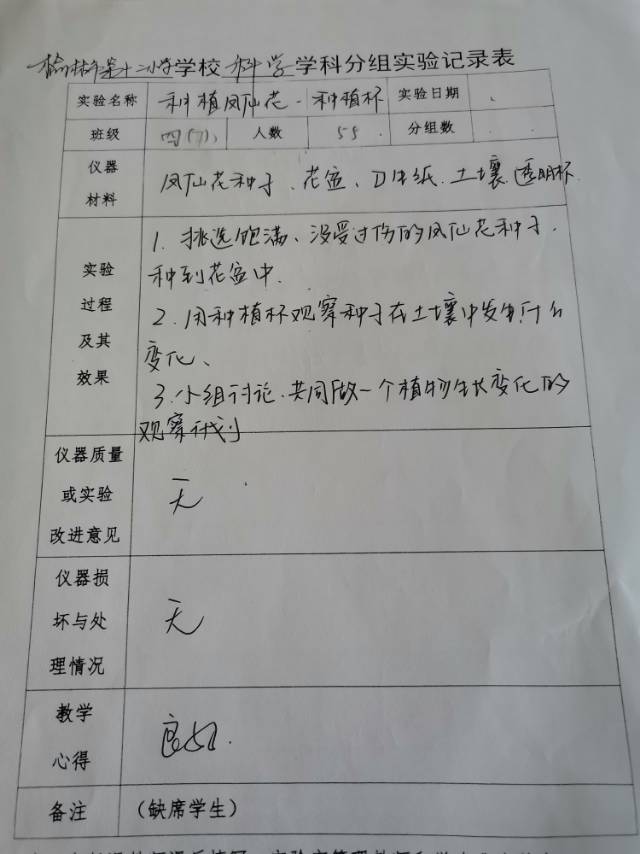 榆林市第十二小学学校 科学 学科分组实验记录表
实验名称 种植凤仙花-种植杯 实验日期
班级 四(7) 人数 55 分组数
仪器材料 凤仙花种子、花盆、卫生纸、土壤、透明杯
实验过程及其效果
1. 挑选饱满、没受过伤的凤仙花种子.
种到花盆中.
2. 用种植杯观察种子在土壤中发生什么
变化、
3. 小组讨论.共同做一个植物生长变化的
观察计划
仪器质量或实验改进意见 无
仪器损坏与处理情况 无
教学心得 良好.
备注 (缺席学生)